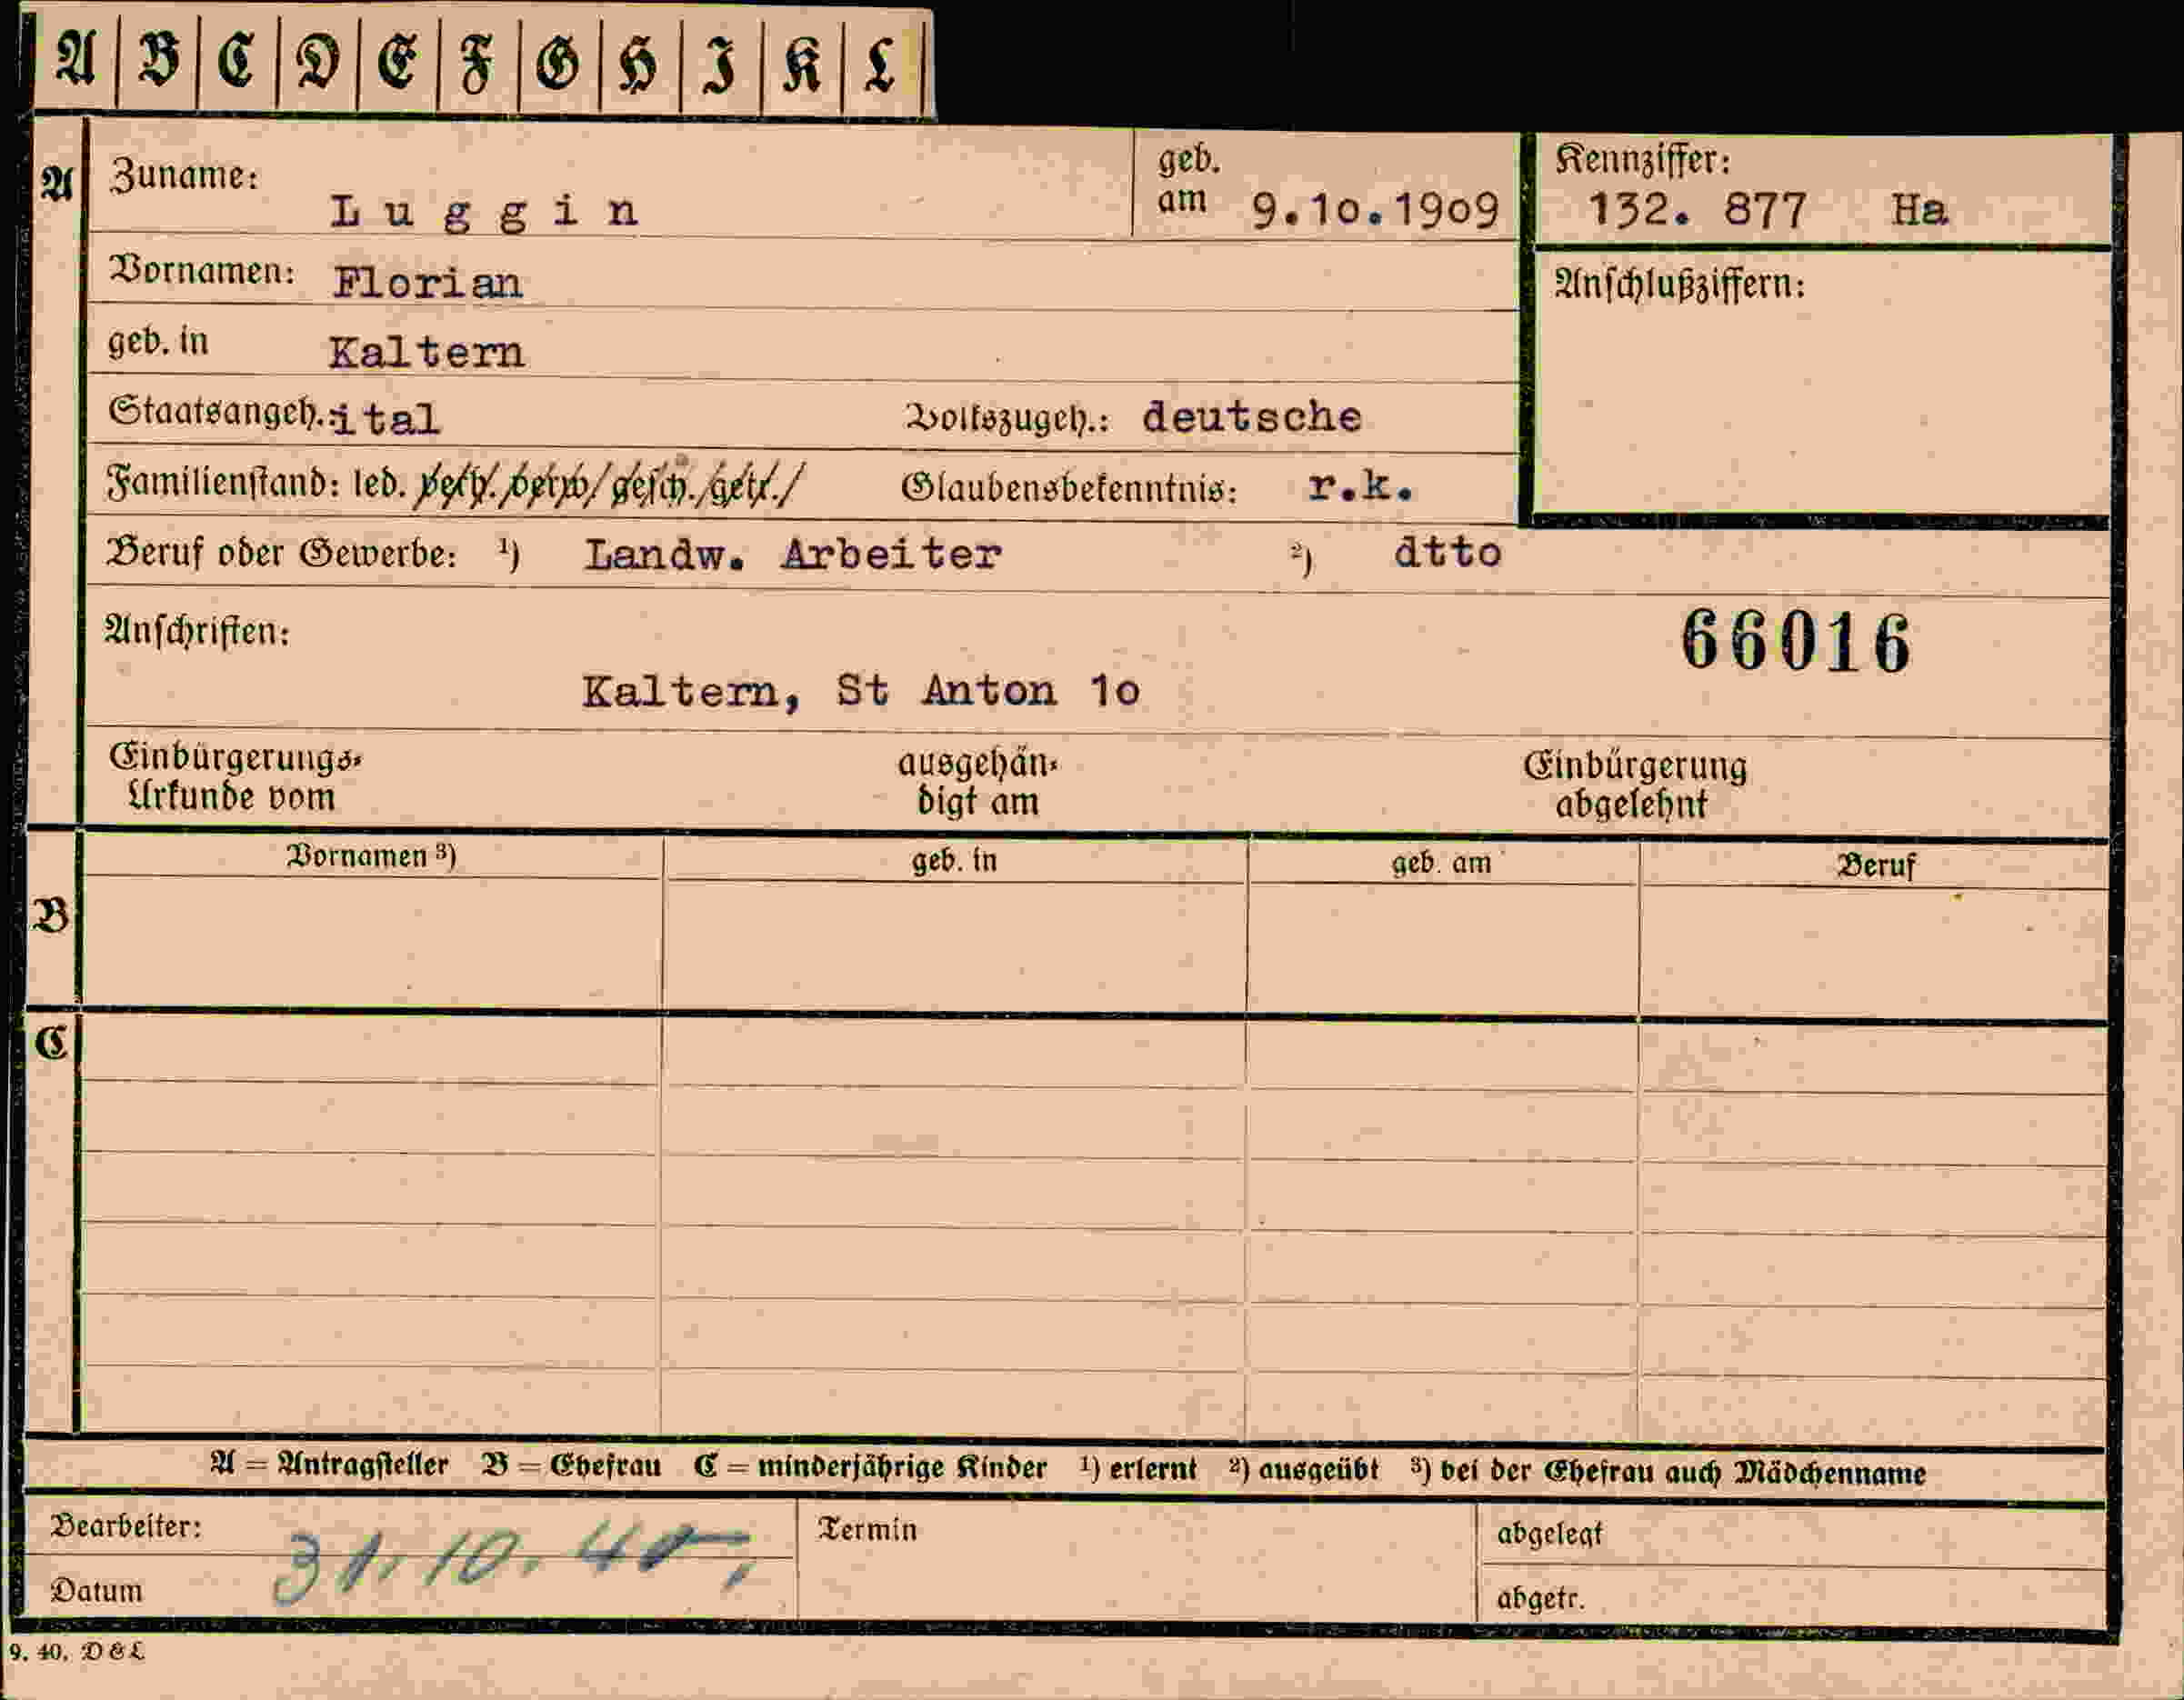 A B C D E F G H I K L
A Zuname: Luggin geb. am 9.10.1909 Kennziffer: 132. 877 Ha
Vornamen: Florian Anschlußziffern:
geb. in Kaltern
Staatsangeh.: ital Volkszugeh.: deutsche
Familienstand: led. verh. verw. gesch. getr. Glaubensbekenntnis: r.k.
Beruf oder Gewerbe: ¹) Landw. Arbeiter ²) dtto
Anschriften: 66016
Kaltern, St Anton 1o
Einbürgerungs- ausgehän- Einbürgerung
Urkunde vom digt am abgelehnt
Vornamen ³) geb. in geb. am Beruf
B
C
A = Antragsteller B = Ehefrau C = minderjährige Kinder ¹) erlernt ²) ausgeübt ³) bei der Ehefrau auch Mädchenname
Bearbeiter: Termin abgelegt
31.10.40
Datum abgetr.
9. 40. D & L